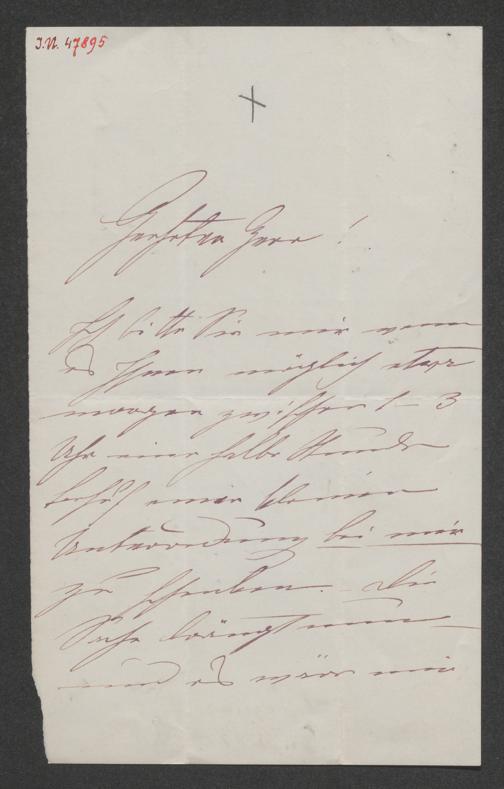 I.N. 47895
Geehrter Herr!
Ich bitte Sie mir wenn
es Ihnen möglich etwa
morgen zwischen 1–3
Uhr eine halbe Stunde
behufs einer kleinen
Unterredung bei mir
zu schenken. – Die
Sache drängt nun
und es wäre mir